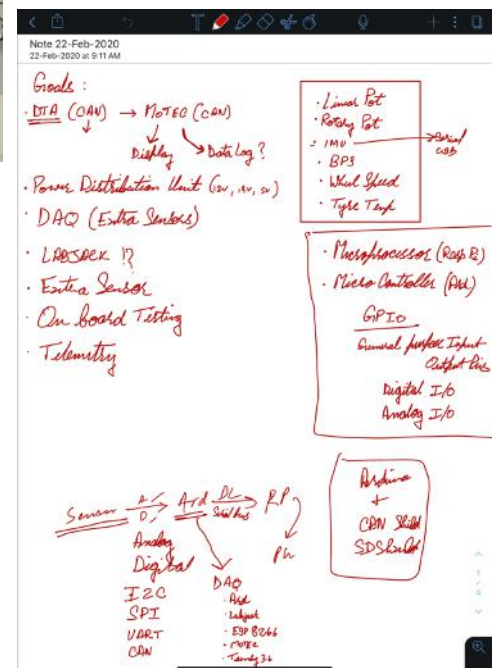 Note 22-Feb-2020
22-Feb-2020 at 9:11 AM
Goals :
· DTA (CAN) → MoTEC (CAN)
Display
Data Log ?
· Power Distribution Unit (12v, 5v)
· DAQ (Extra Sensors)
· LABJACK !?
· Extra Sensor
· On board Testing
· Telemetry
· Linear Pot
· Rotary Pot
· IMU → Serial USB
· BPS
· Wheel Speed
· Tyre Temp
· Microprocessor (Rasp Pi)
· Micro Controller (Ard)
GPIO
General purpose Input
Output Pins
Digital I/O
Analog I/O
Sensor → Ard → RP
A/
D/
Analog
Digital
I2C
SPI
UART
CAN
DAQ
· Ard
· Labjack
· ESP 8266
· MOTEC
· Teensy 36
Arduino
+
CAN Shield
SD Shield